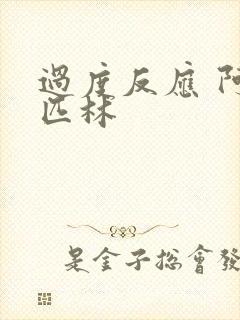 過度反應 阿
匹林
是金子总會發